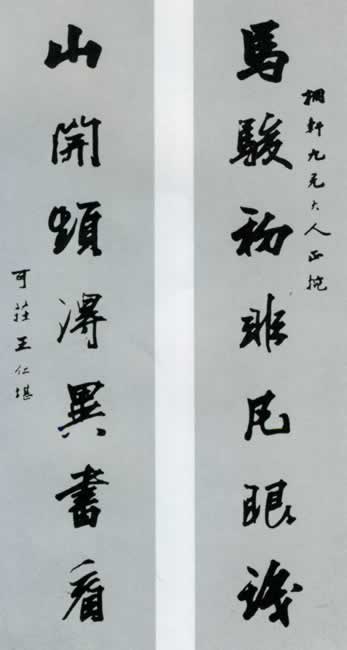 桐軒九兄大人正腕
馬駿初非凡眼識
山開頻得異書看
可莊王仁堪